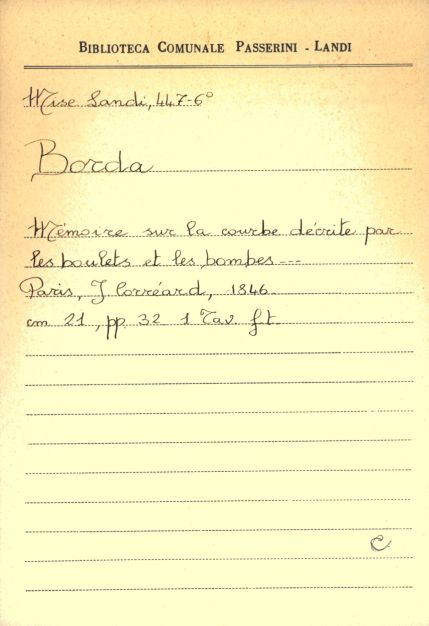 BIBLIOTECA COMUNALE PASSERINI - LANDI
Misc Landi, 447-6°
Borda
Mémoire sur la courbe décrite par
les boulets et les bombes ---
Paris, J Corréard, 1846.
cm 21, pp. 32 1 Tav. f.t.
C